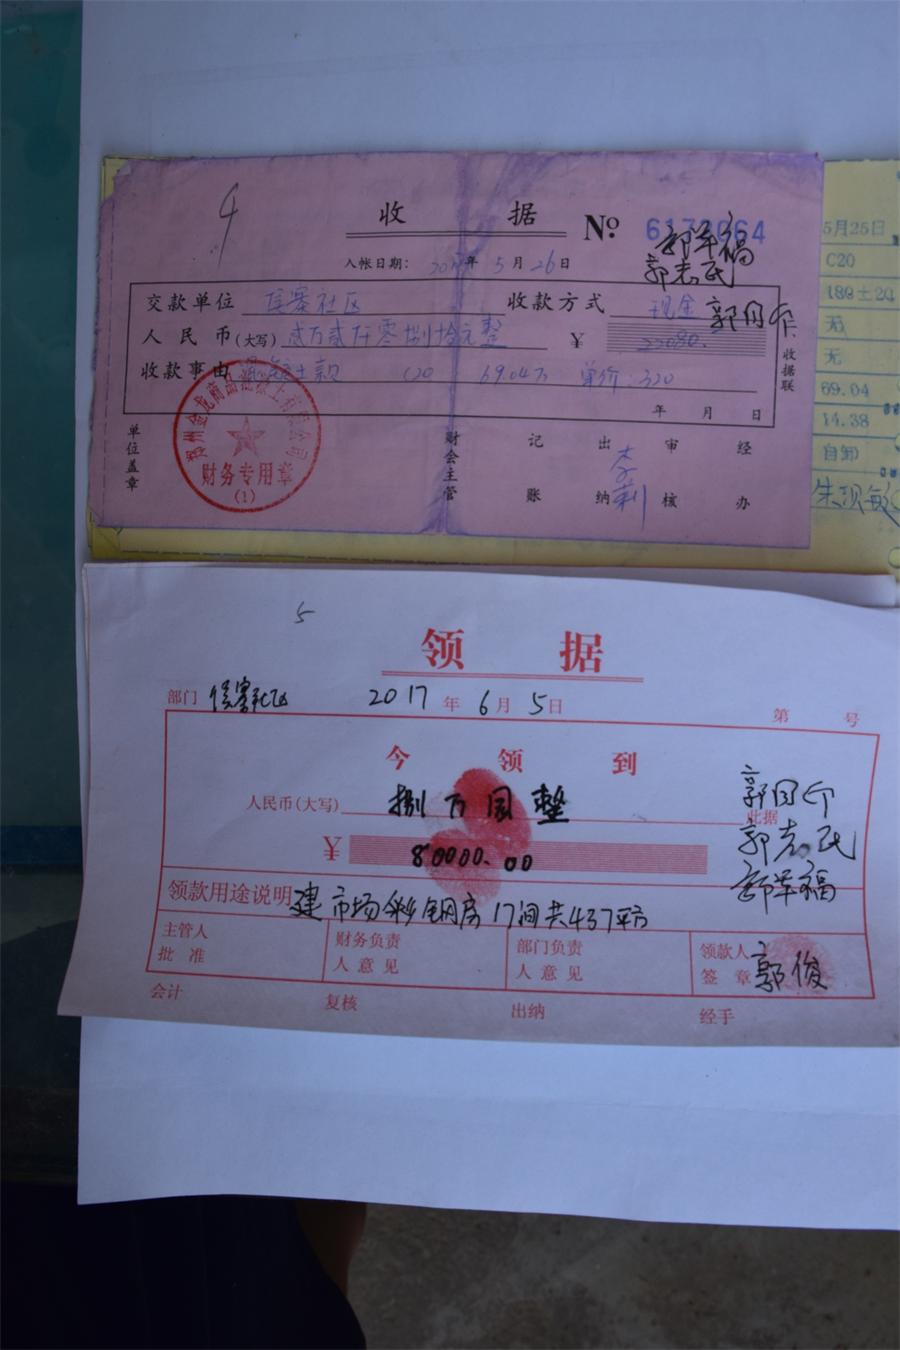 4
收 据
No 6173064
郭军福
郭志民
郭国印
入帐日期: 2017年 5 月 26 日
交款单位 侯寨社区 收款方式 现金
人民币(大写) 贰万贰仟零捌拾元整 ¥ 22080.
收款事由 混凝土款 C20 69.04方 单价:320
收据联
年 月 日
单位盖章
财会主管 记账 出纳 审核 经办
财务专用章
(1)
5月25日
C20
180±20
无
无
69.04
14.38
自卸
5
领 据
部门 侯寨社区 2017 年 6 月 5 日 第 号
今 领 到
人民币(大写) 捌万圆整 此据
¥ 80000.00
郭国印
郭志民
郭军福
领款用途说明 建市场彩钢房17间共437平方
主管人批准 财务负责人意见 部门负责人意见 领款人签章 郭俊
会计 复核 出纳 经手